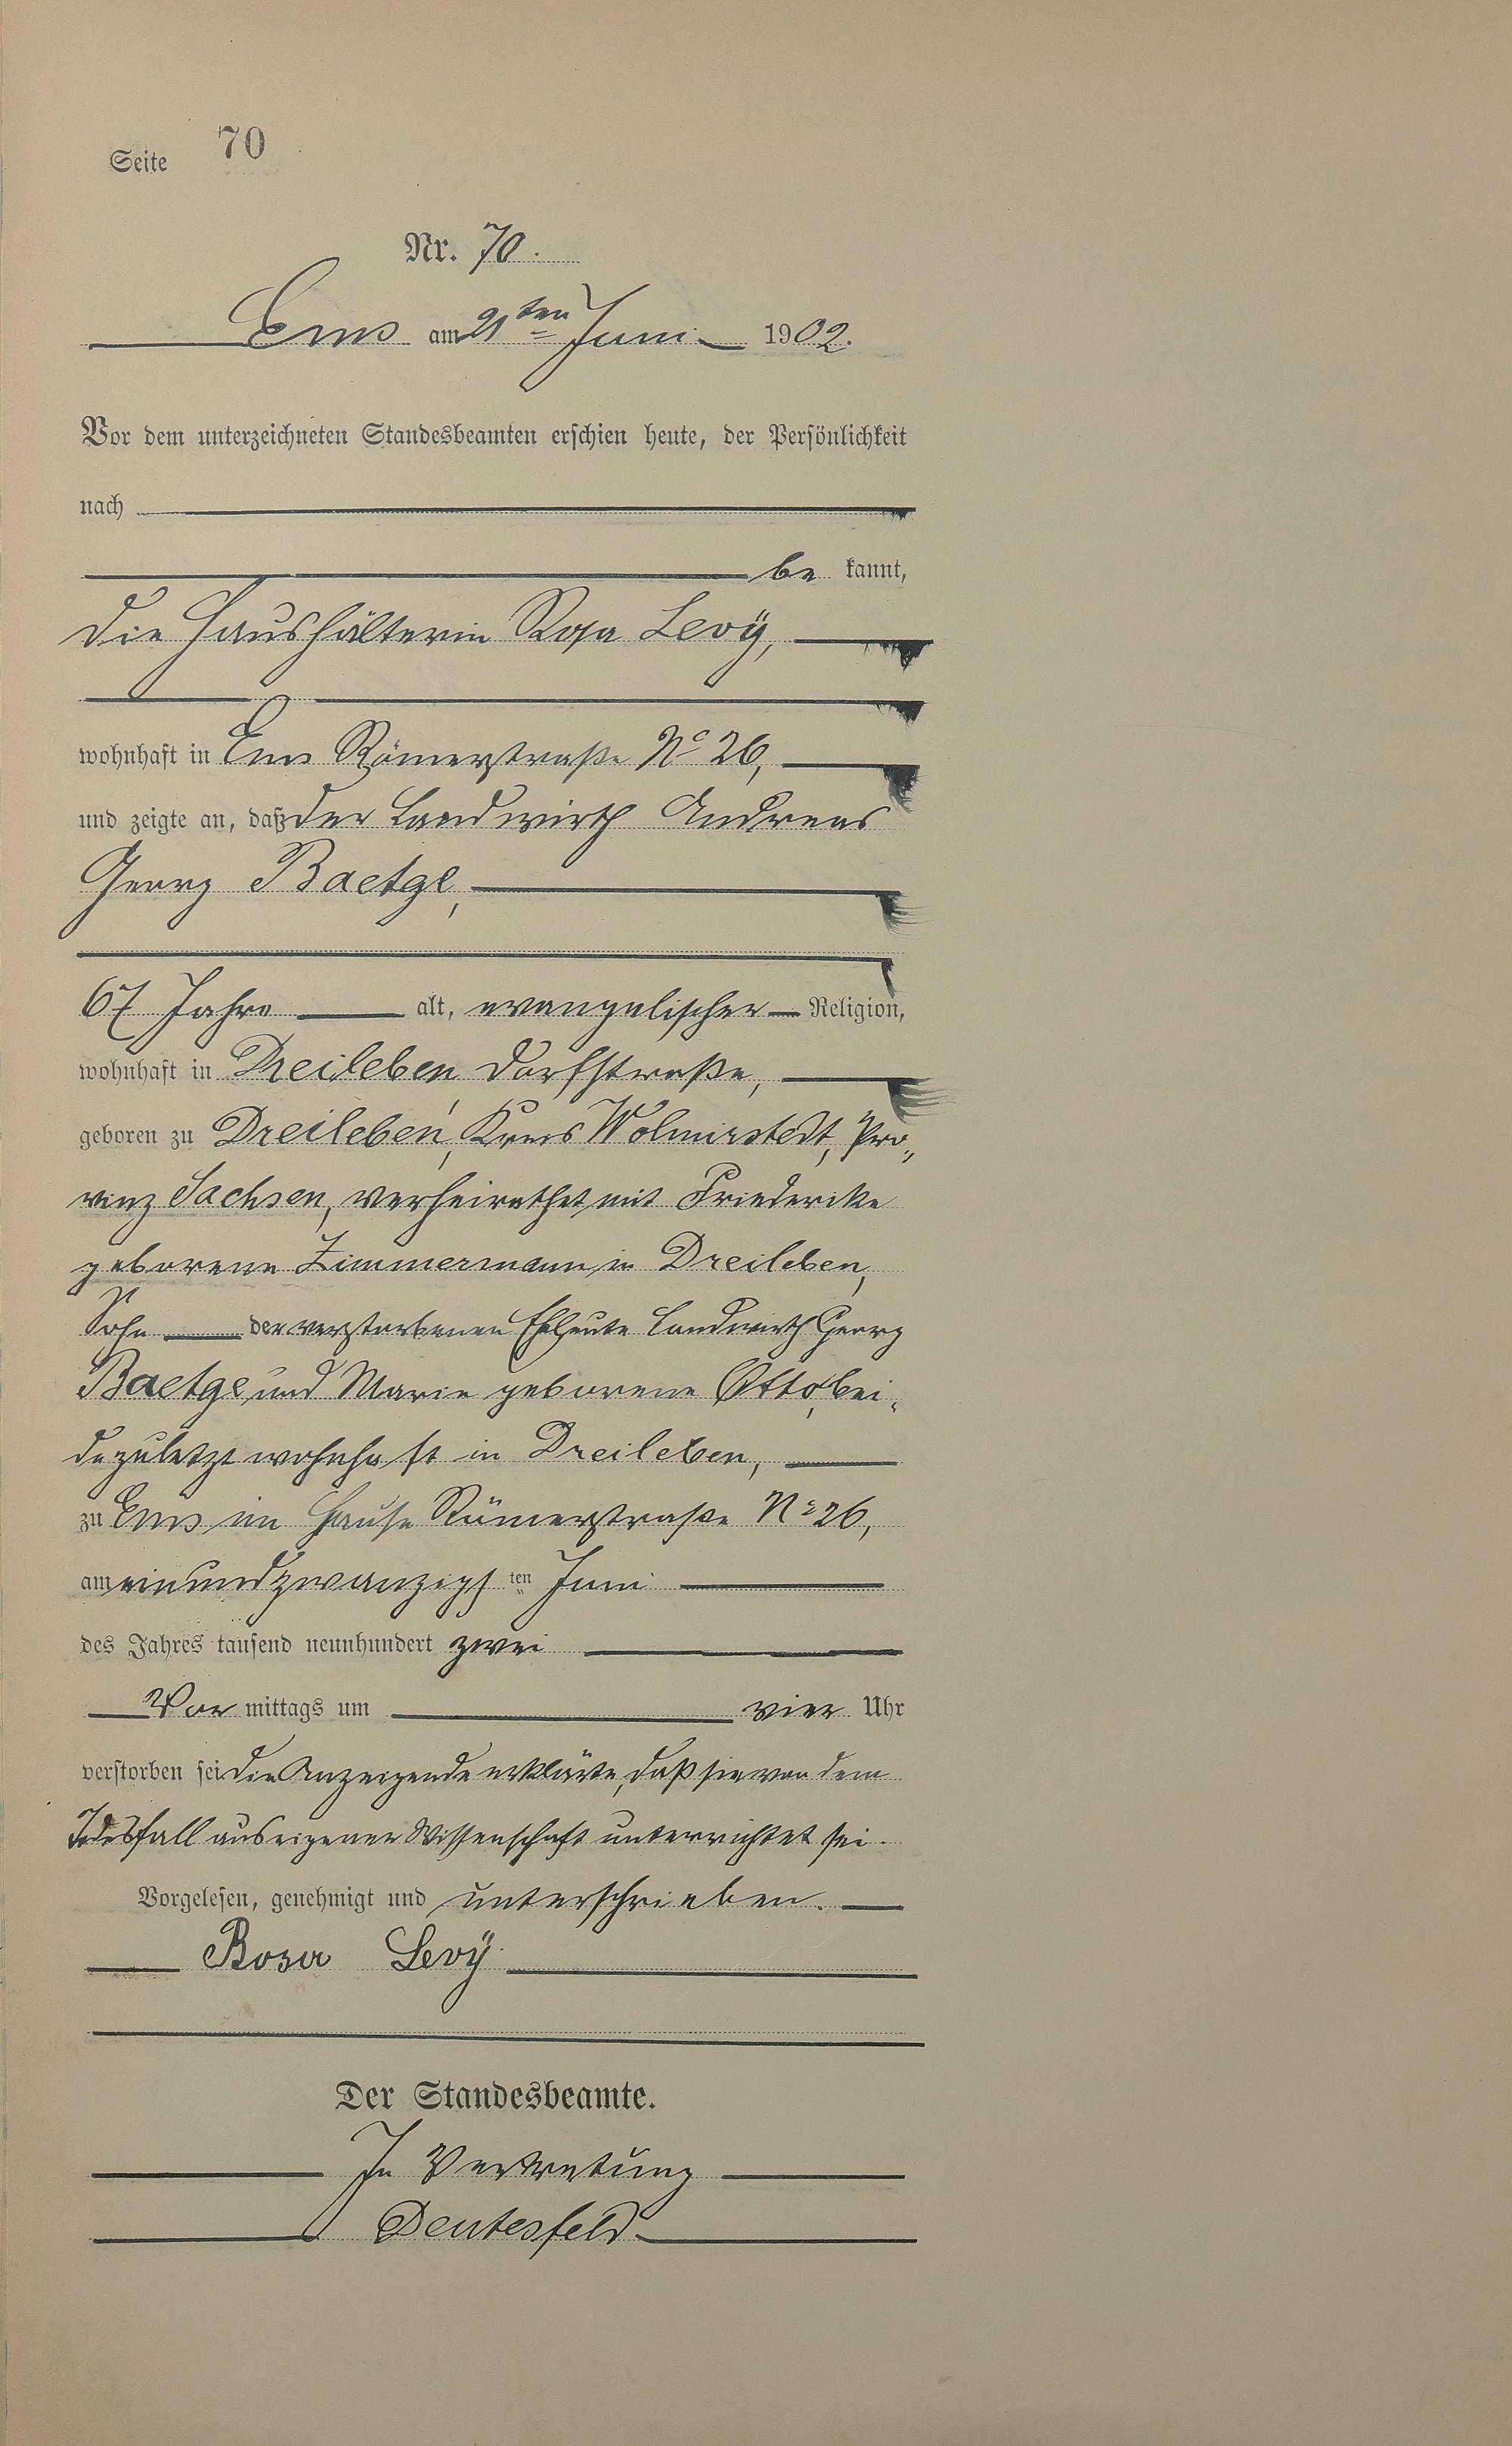 Seite 70
Nr. 70.
Ems am 21ten Juni 1902.
Vor dem unterzeichneten Standesbeamten erschien heute, der Persönlichkeit
nach
be kannt,
die Haushälterin Rosa Levÿ,
wohnhaft in Ems Römerstraße No 26,
und zeigte an, daß der Landwirth Andreas
Georg Baetge,
67 Jahre alt, evangelischer Religion,
wohnhaft in Dreileben Dorfstraße,
geboren zu Dreileben, Kreis Wolmirstedt, Pro„
vinz Sachsen, verheirathet mit Friedericke
geborene Zimmermann in Dreileben,
Sohn der verstorbenen Eheleute Landwirth Georg
Baetge und Marie geborene Otto, bei„
de zuletzt wohnhaft in Dreileben,
zu Ems im Hause Römerstraße No 26,
am einundzwanzigs ten Juni
des Jahres tausend neunhundert zwei
Vor mittags um vier Uhr
verstorben sei. Die Anzeigende erklärte, daß sie von dem
Todesfall aus eigener Wissenschaft unterrichtet sei.
Vorgelesen, genehmigt und unterschrieben.
Rosa Levÿ.
Der Standesbeamte.
In Vertretung
Deutesfeld